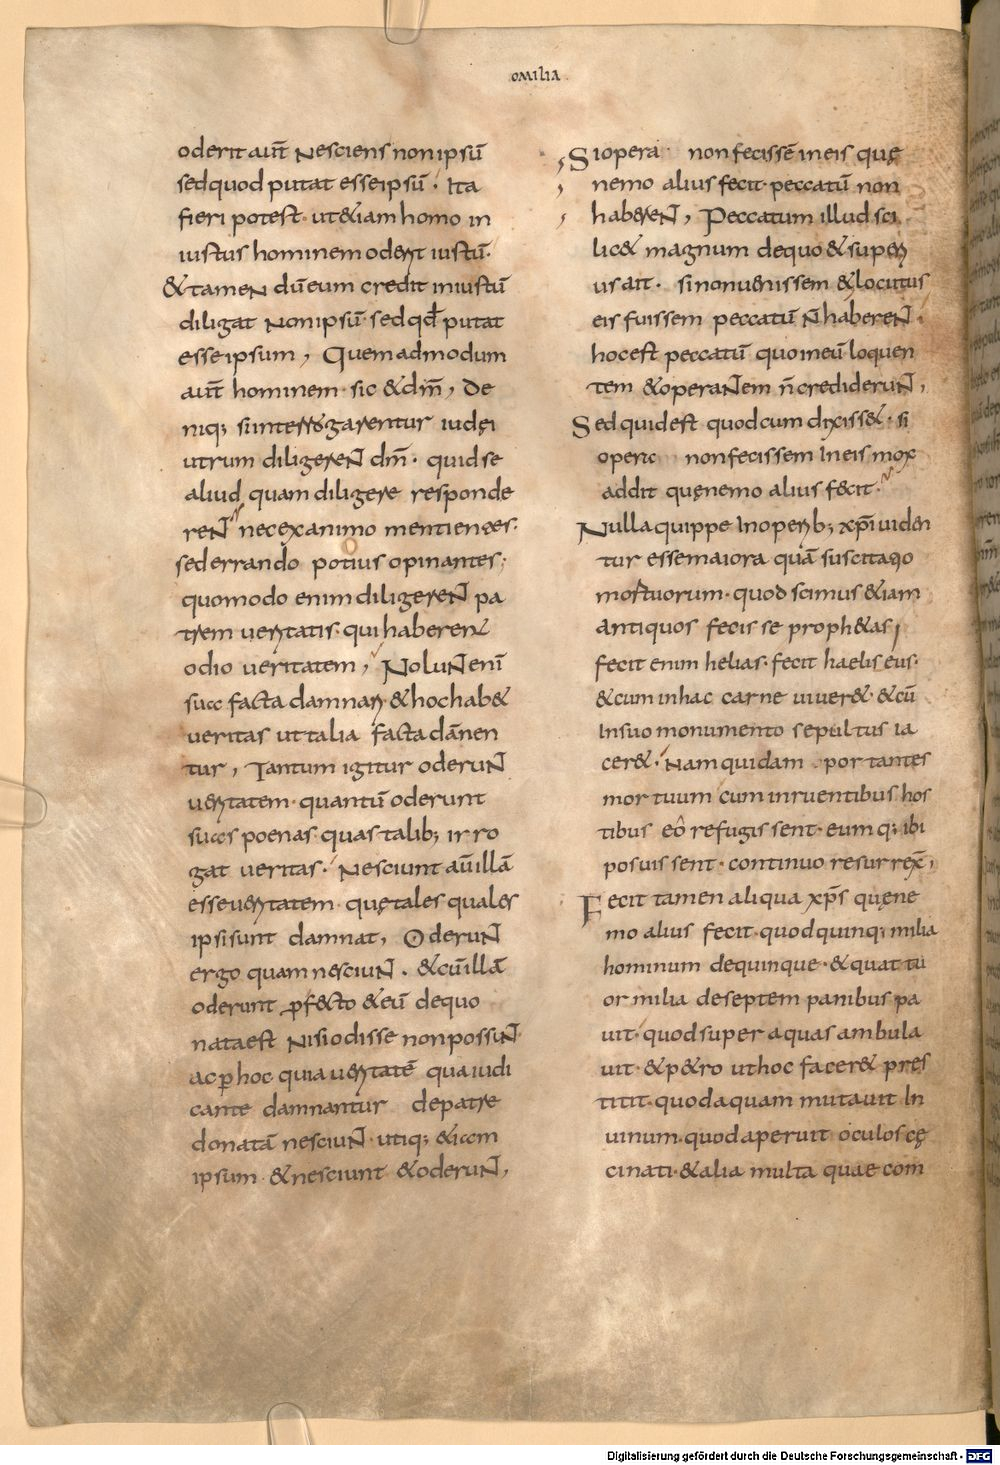 omilia
oderit aut̄ nesciens non ipsū
sed quod putat esse ipsū · Ita
fieri potest · ut &iam homo in
iustus hominem oderit iustū ·
& tamen dū eum credit iniustū
diligat non ipsū · sed qđ putat
esse ipsum , Quemadmodum
aut̄ hominem · sic & dm̄ , De
niq; si interrogarentur iudęi
utrum diligerent dm̄ · quid se
aliud quam diligere responde
rent nec ex animo mentientes ·
sed errando potius opinantes ·
quomodo enim diligerent pa
trem veritatis · qui haberent
odio veritatem , Nolunt enī
sua facta damnari & hoc hab&
veritas ut talia facta dānen
tur , Tantum igitur oderunt
veritatem · quantū oderunt
suas poenas · quas talib; irro
gat veritas · Nesciunt aū illā
esse veritatem · quę tales quales
ipsi sunt damnat , Oderunt
ergo quam nesciunt · & cū illā
oderunt ꝓfecto & eū de quo
nata est nisi odisse non possunt
ac ꝑ hoc quia veritatē qua iudi
cante damnantur de patre
donatā nesciunt · utiq; &iam
ipsum & nesciunt & oderunt ,
Si opera non fecissē in eis quę
nemo alius fecit · peccatū non
haberent , Peccatum illud sci
lic& magnum de quo & superi
us ait · si non venissem & locutus
eis fuissem peccatū n̄ haberent ·
hoc est peccatū quo in eū loquen
tem & operantem n̄ crediderunt ,
Sed quid est quod cum dixiss& · si
opera non fecissem in eis mox
addit quę nemo alius fecit ·
Nulla quippe in operib; xp̄i viden
tur esse maiora quā suscitatio
mortuorum · quod scimus &iam
antiquos fecisse proph&as ,
fecit enim helias · fecit haeliseus ·
& cum in hac carne viver& · & cū
in suo monumento sepultus ia
cer& · Nam quidam portantes
mortuum cum inruentibus hos
tibus eo refugissent · eumq; ibi
posuissent · continuo resurrex̄ ,
Fecit tamen aliqua xp̄s quę ne
mo alius fecit · quod quinq; milia
hominum de quinque · & quattu
or milia de septem panibus pa
vit · quod super aquas ambula
vit · & p&ro ut hoc facer& pręs
titit · quod aquam mutavit in
vinum · quod aperuit oculos cę
ci nati · & alia multa quae com
Digitalisierung gefördert durch die Deutsche Forschungsgemeinschaft - DFG